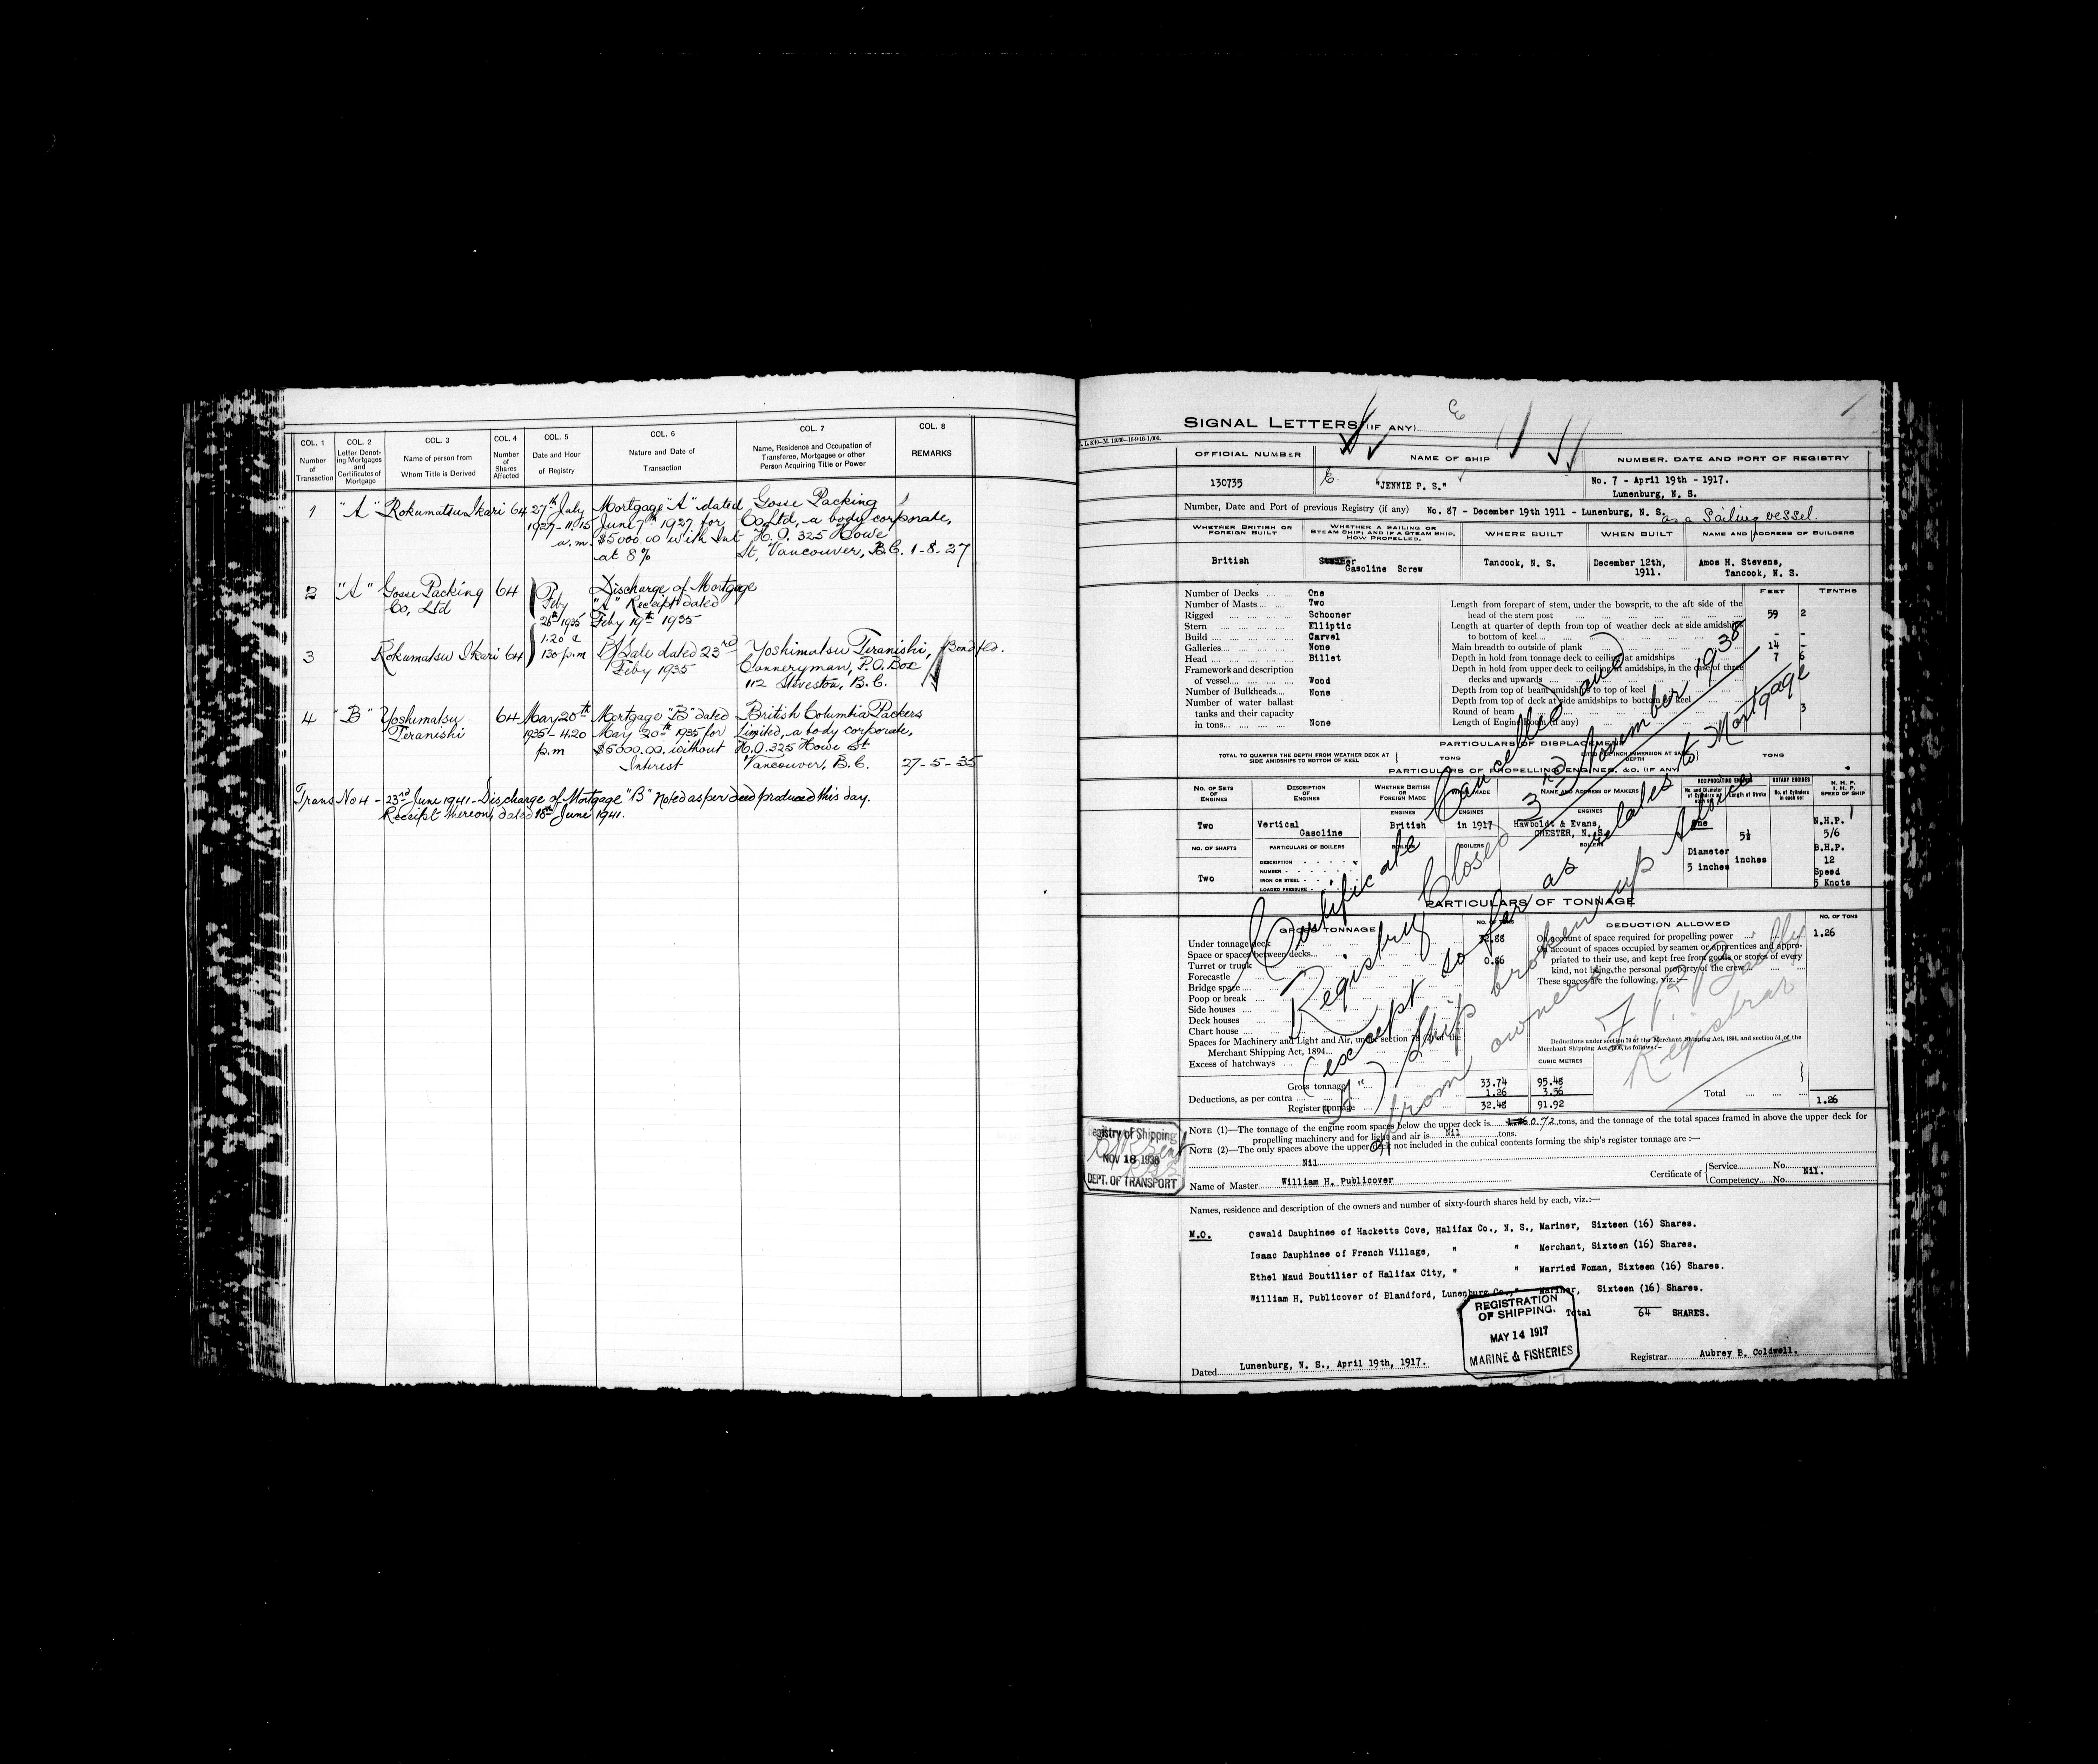 COL. 1 COL. 2 COL. 3 COL. 4 COL. 5 COL. 6 COL. 7 COL. 8
Number of Transaction
Letter Denoting Mortgages and Certificates of Mortgage
Name of person from Whom Title is Derived
Number of Shares Affected
Date and Hour of Registry
Nature and Date of Transaction
Name, Residence and Occupation of Transferee, Mortgagee or other Person Acquiring Title or Power
REMARKS
1 "A" Rokumatsu Ikari 64 27th July Mortgage "A" dated Gosse Packing
1927 - 11.15 June 7th 1927 for Co Ltd, a body corporate,
a.m. $5000.00 with Int H.O. 325 Howe
at 8% St, Vancouver, B.C. 1-8-27
2 "A" Gosse Packing 64 Discharge of Mortgage
Co, Ltd Feby "A" Receipt dated
26th 1935 Feby 19th 1935
1.20 &
3 Rokumatsu Ikari 64 130 p.m B/Sale dated 23rd Yoshimatsu Teranishi,
Feby 1935 Canneryman, P.O. Box
112 Steveston, B.C.
4 "B" Yoshimatsu 64 May 20th Mortgage "B" dated British Columbia Packers
Teranishi 1935 - 4.20 May 20th 1935 for Limited, a body corporate,
p.m $5000.00, without H.O. 325 Howe St
Interest Vancouver, B.C. 27-5-35
Trans No 4 - 23rd June 1941 - Discharge of Mortgage "B" Noted as per deed produced this day.
Receipt thereon, dated 18th June 1941.
SIGNAL LETTERS (IF ANY)
OFFICIAL NUMBER NAME OF SHIP NUMBER, DATE AND PORT OF REGISTRY
130735 "JENNIE P. S." No. 7 - April 19th - 1917.
Lunenburg, N. S.
Number, Date and Port of previous Registry (if any) No. 87 - December 19th 1911 - Lunenburg, N. S. as a Sailing vessel.
WHETHER BRITISH OR FOREIGN BUILT
WHETHER A SAILING OR STEAM SHIP; AND IF A STEAM SHIP, HOW PROPELLED.
WHERE BUILT WHEN BUILT NAME AND ADDRESS OF BUILDERS
British Gasoline Screw Tancook, N. S. December 12th, 1911. Amos H. Stevens,
Tancook, N. S.
FEET TENTHS
Number of Decks One
Number of Masts Two
Rigged Schooner
Stern Elliptic
Build Carvel
Galleries None
Head Billet
Framework and description
of vessel Wood
Number of Bulkheads None
Number of water ballast
tanks and their capacity
in tons None
Length from forepart of stem, under the bowsprit, to the aft side of the
head of the stern post 59 2
Length at quarter of depth from top of weather deck at side amidships
to bottom of keel - -
Main breadth to outside of plank 14 -
Depth in hold from tonnage deck to ceiling at amidships 7 6
Depth in hold from upper deck to ceiling at amidships, in the case of three
decks and upwards
Depth from top of beam amidships to top of keel
Depth from top of deck at side amidships to bottom of keel
Round of beam 3
Length of Engine Room (if any)
PARTICULARS OF DISPLACEMENT
TOTAL TO QUARTER THE DEPTH FROM WEATHER DECK AT SIDE AMIDSHIPS TO BOTTOM OF KEEL TONS TONS
PARTICULARS OF PROPELLING ENGINES, &O. (IF ANY)
NO. OF SETS OF ENGINES
DESCRIPTION OF ENGINES
WHETHER BRITISH OR FOREIGN MADE
NAME AND ADDRESS OF MAKERS
RECIPROCATING ENGINES
Length of Stroke
ROTARY ENGINES
No. of Cylinders in each set
N. H. P. I. H. P. SPEED OF SHIP
Two Vertical Gasoline British in 1917 Hawboldt & Evans,
CHESTER, N. S.
Diameter 5 inches
5½ inches
N.H.P.
5/6
B.H.P.
12
Speed
5 Knots
NO. OF SHAFTS PARTICULARS OF BOILERS
Two
DESCRIPTION
NUMBER
IRON OR STEEL
LOADED PRESSURE
PARTICULARS OF TONNAGE
GROSS TONNAGE NO. OF TONS DEDUCTION ALLOWED NO. OF TONS
Under tonnage deck
Space or spaces between decks
Turret or trunk
Forecastle
Bridge space
Poop or break
Side houses
Deck houses
Chart house
Spaces for Machinery and Light and Air, under section 78 (2) of the
Merchant Shipping Act, 1894
Excess of hatchways
On account of space required for propelling power 1.26
On account of spaces occupied by seamen or apprentices and appro-
priated to their use, and kept free from goods or stores of every
kind, not being the personal property of the crew
These spaces are the following, viz.:—
Deductions under section 79 of the Merchant Shipping Act, 1894, and section 54 of the
Merchant Shipping Act, 1906, as follows:—
CUBIC METRES
Gross tonnage 33.74 95.48
Deductions, as per contra 1.26 3.56
Register tonnage 32.48 91.92
Total 1.26
Certificate Cancelled and
Registry Closed 3rd November 1938
(except so far as relates to Mortgage
"B") Ship broken up Advice
from owner
Registrar
NOTE (1)—The tonnage of the engine room spaces below the upper deck is 0.72 tons, and the tonnage of the total spaces framed in above the upper deck for
propelling machinery and for light and air is Nil tons.
NOTE (2)—The only spaces above the upper deck not included in the cubical contents forming the ship's register tonnage are :—
Nil
Name of Master William H. Publicover
Certificate of Service No. Competency No. Nil.
Registry of Shipping
NOV 18 1938
DEPT. OF TRANSPORT
Names, residence and description of the owners and number of sixty-fourth shares held by each, viz.:—
M.O. Oswald Dauphinee of Hacketts Cove, Halifax Co., N. S., Mariner, Sixteen (16) Shares.
Isaac Dauphinee of French Village, " " Merchant, Sixteen (16) Shares.
Ethel Maud Boutilier of Halifax City, " " Married Woman, Sixteen (16) Shares.
William H. Publicover of Blandford, Lunenburg Co., " Mariner, Sixteen (16) Shares.
Total 64 SHARES.
REGISTRATION
OF SHIPPING.
MAY 14 1917
MARINE & FISHERIES
Dated Lunenburg, N. S., April 19th, 1917. Registrar Aubrey B. Coldwell.